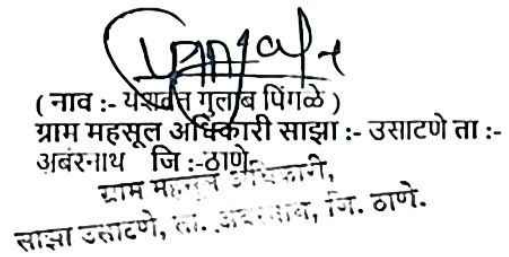 ( नाव :- यशवंत गुलाब पिंगळे )
ग्राम महसूल अधिकारी साझा :- उसाटणे ता :-
अबंरनाथ जि :-ठाणे.
ग्राम महसूल अधिकारी,
साझा उसाटणे, ता. अंबरनाथ, जि. ठाणे.